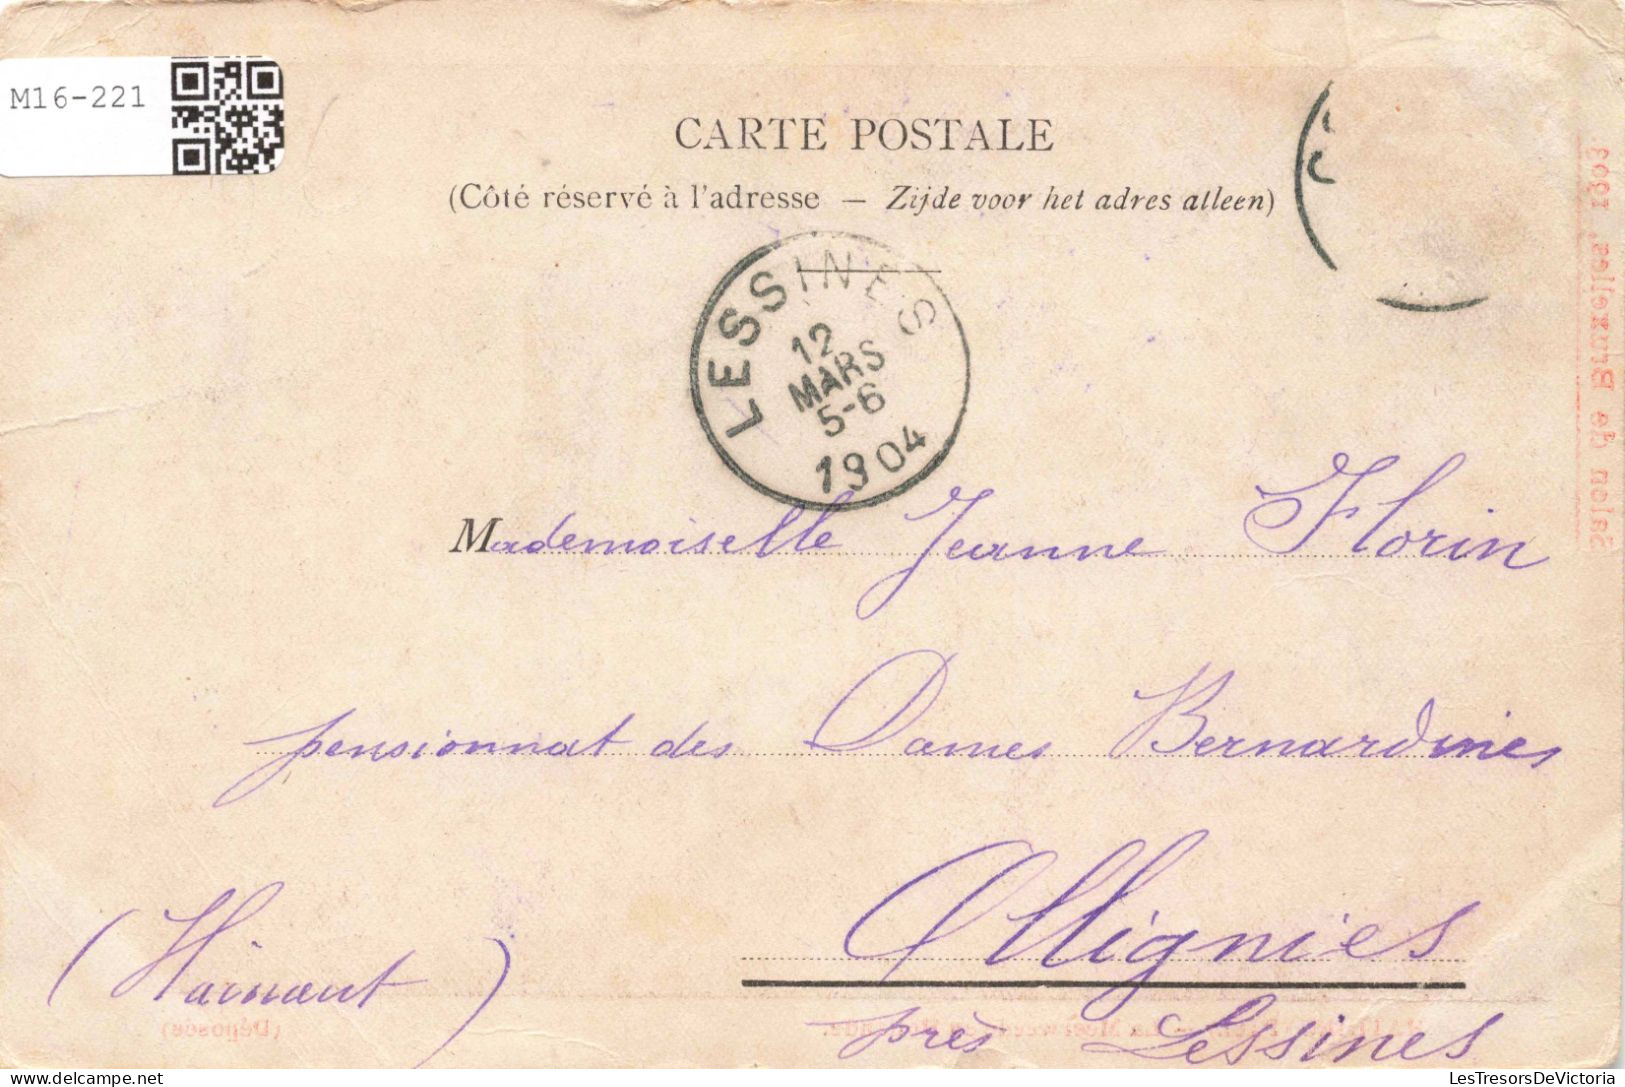 M16-221
CARTE POSTALE
(Côté réservé à l'adresse — Zijde voor het adres alleen)
LESSINES
12
MARS
5-6
1904
Salon de Bruxelles, 1903
Mademoiselle Jeanne Florin
pensionnat des Dames Bernardines
Ollignies
(Hainaut)
près Lessines
(Déposée)
LesTresorsDeVictoria